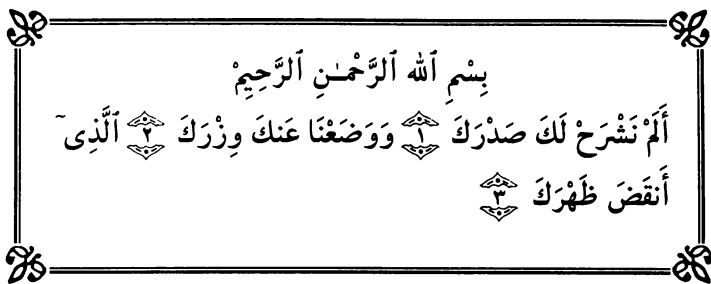 بِسْمِ ٱللَّهِ ٱلرَّحْمَـٰنِ ٱلرَّحِيمْ
أَلَمْ نَشْرَحْ لَكَ صَدْرَكَ ١ وَوَضَعْنَا عَنكَ وِزْرَكَ ٢ ٱلَّذِىٓ
أَنقَضَ ظَهْرَكَ ٣